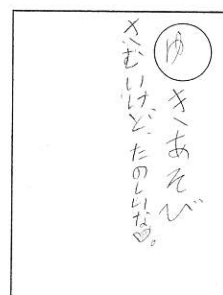 ゆきあそび
さむいけど、たのしいな♡。